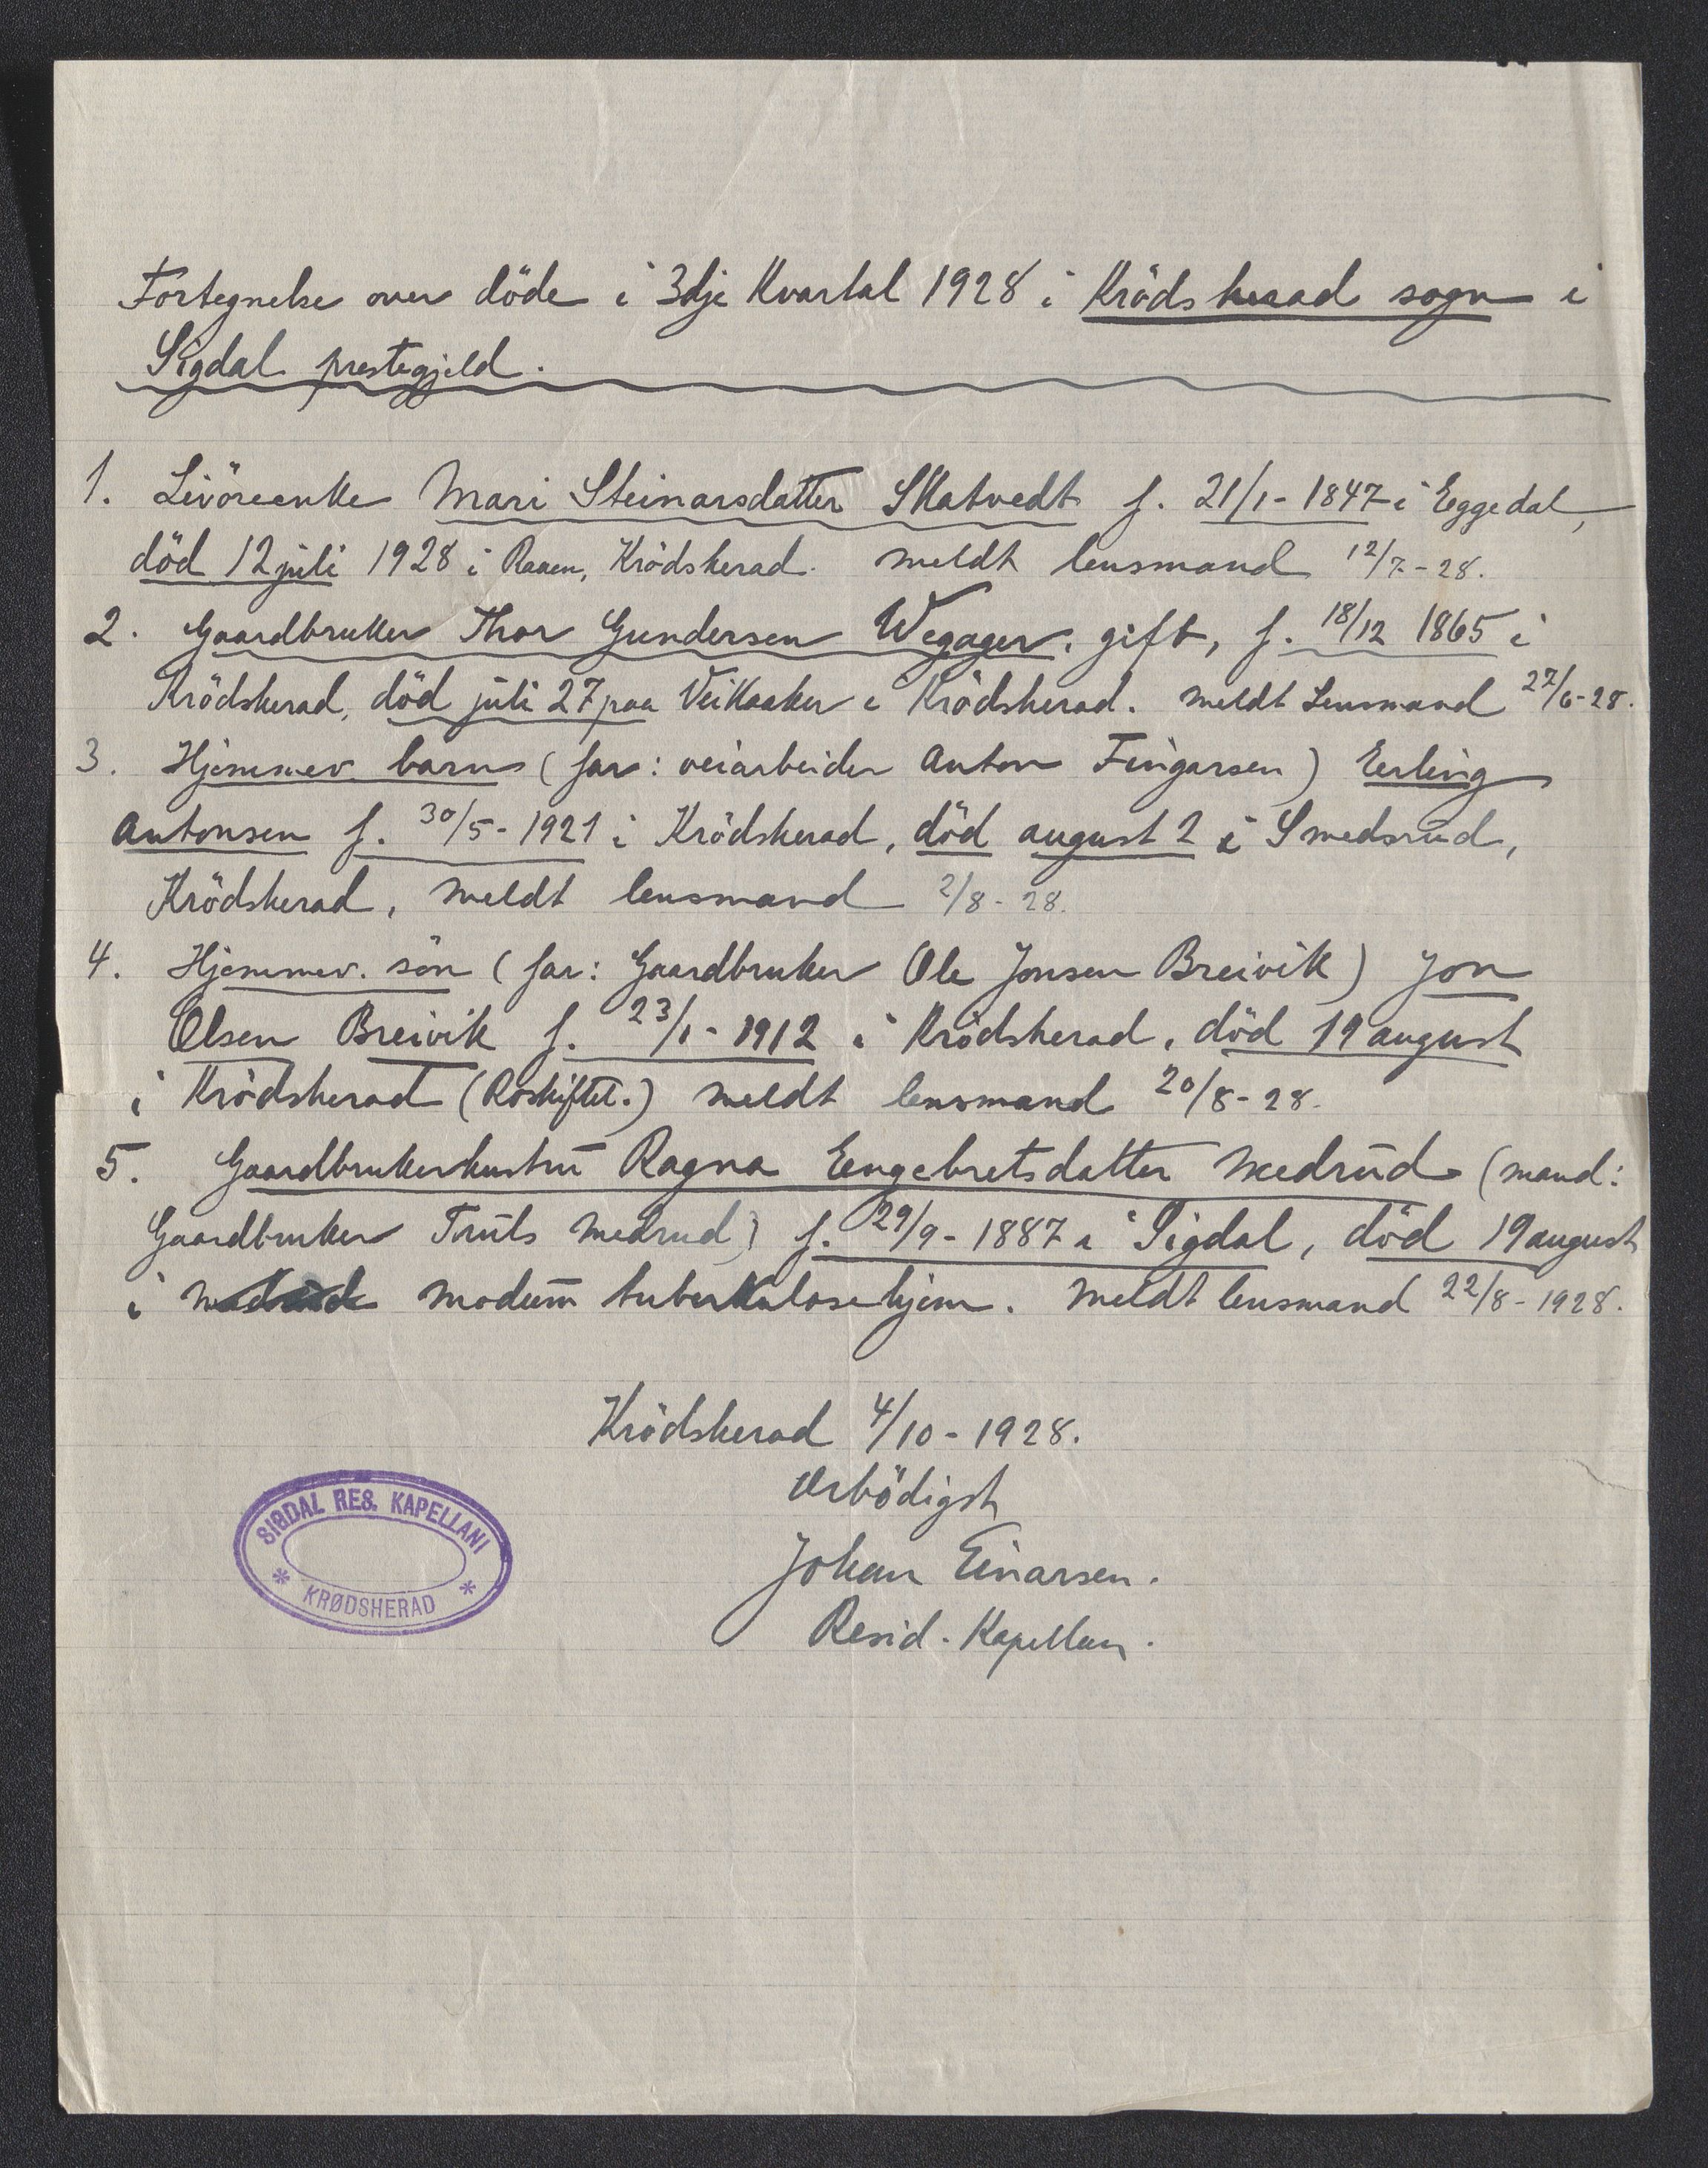 Fortegnelse over döde i 3dje Kvartal 1928 i Krödsherad sogn i
Sigdal prestegjeld.
1. Livöreenke Mari Steinarsdatter Skatvedt f. 21/1-1847 i Eggedal,
död 12 juli 1928 i Raaen, Krödsherad. meldt lensmand 12/7-28.
2. Gaardbruker Thor Gundersen Wegager. gift, f. 18/12 1865 i
Krödsherad, död juli 27 paa Veikaaker i Krödsherad. meldt Lensmand 27/6-28.
3. Hjemmev. barn (far: veiarbeider Anton Fingarsen) Erling
Antonsen f. 30/5-1921 i Krödsherad, död august 2 i Smedsrud,
Krödsherad, meldt lensmand 2/8-28.
4. Hjemmev. sön (far: Gaardbruker Ole Jonsen Breivik) Jon
Olsen Breivik f. 23/1-1912 i Krödsherad, död 19 august
i Krödsherad (Roskiftet.) meldt lensmand 20/8-28.
5. Gaardbrukerhustru Ragna Engebretsdatter Medrud (mand:
Gaardbruker Truls Medrud) f. 29/9-1887 i Sigdal, död 19 august
i Modum tuberkulosehjem. meldt lensmand 22/8-1928.
Krödsherad 4/10-1928.
Ærbödigst
Johan Einarsen.
Resid. Kapellan.
SIGDAL RES. KAPELLANI
* KRØDSHERAD *